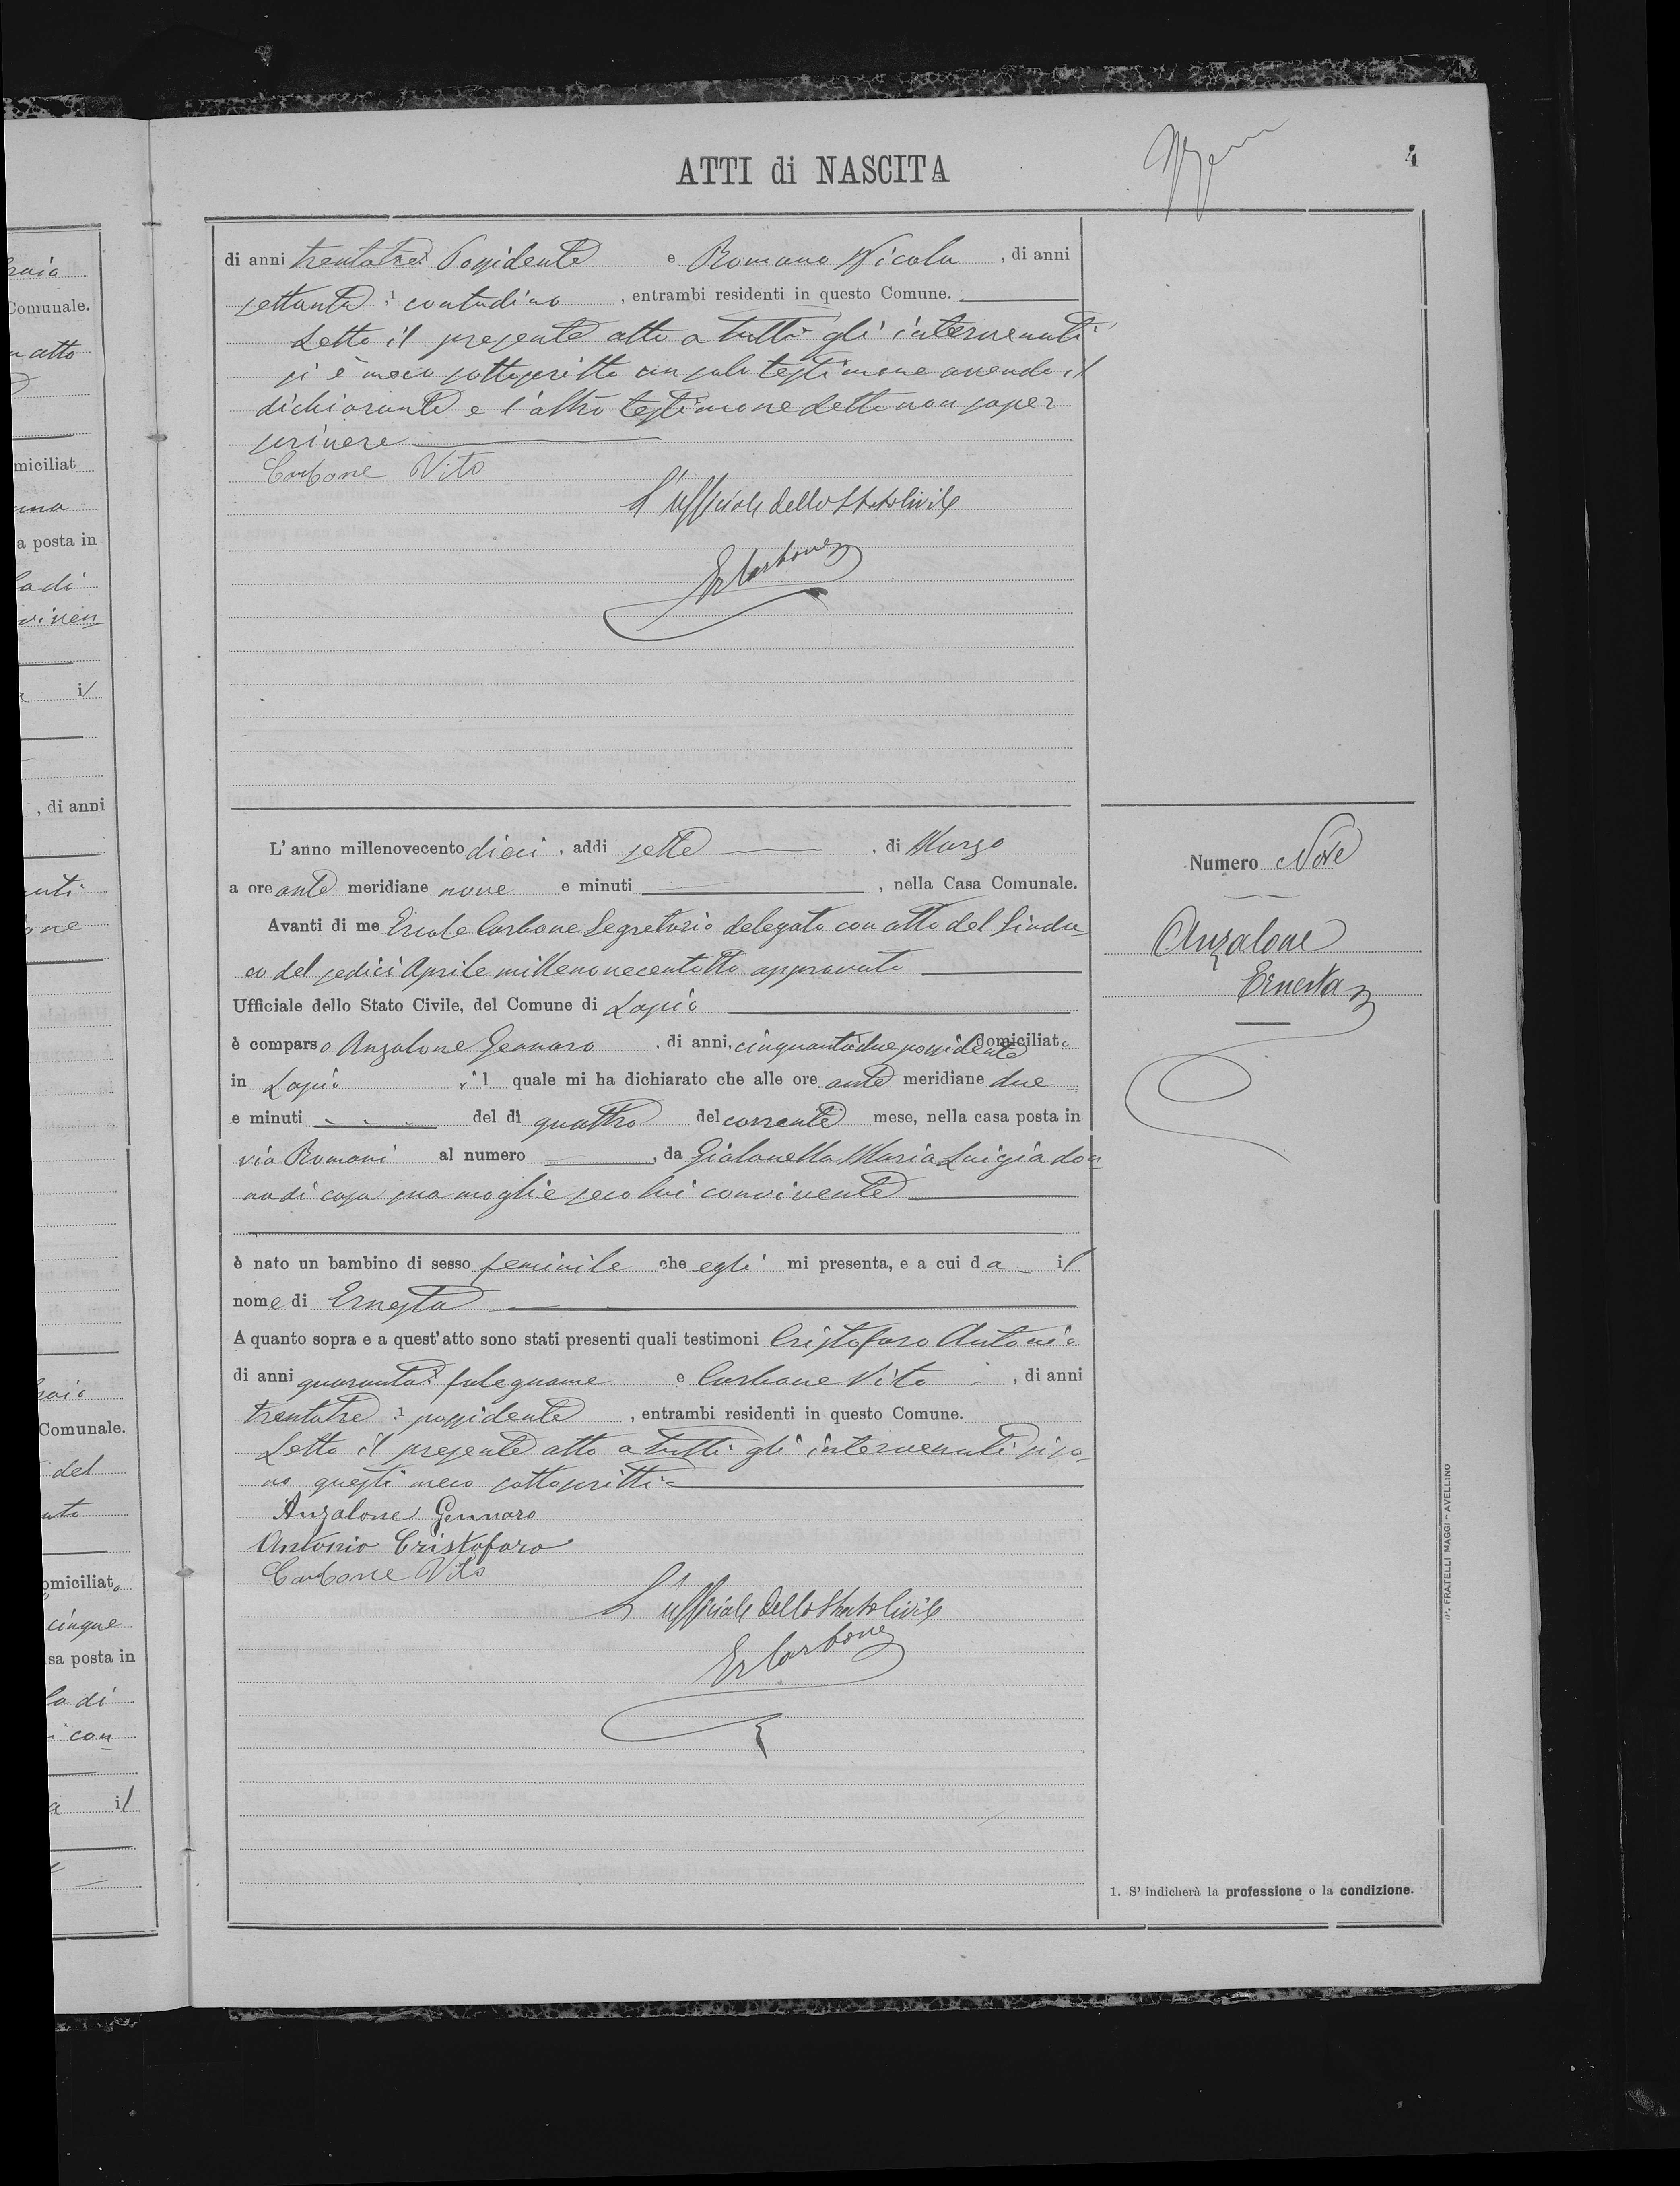 ATTI di NASCITA
4
di anni trentatre Possidente e Romano Nicola, di anni
settanta contadino, entrambi residenti in questo Comune.
Letto il presente atto a tutti gli intervenuti
si è meco sottoscritto un solo testimone avendo il
dichiarante e l'altro testimone detto non saper
scrivere
Carbone Vito
L'ufficiale dello Stato Civile
Er Carbone
L'anno millenovecento dieci, addi sette, di Marzo
a ore ante meridiane nove e minuti , nella Casa Comunale.
Avanti di me Ercole Carbone Segretario delegato con atto del Sinda-
co del sedici Aprile millenovecentotto approvato
Ufficiale dello Stato Civile, del Comune di Lapio
è comparso Anzalone Gennaro, di anni, cinquantadue possidente domiciliato
in Lapio, il quale mi ha dichiarato che alle ore ante meridiane due
e minuti del dì quattro del corrente mese, nella casa posta in
via Romani al numero , da Gialonella Maria Luigia don
na di casa sua moglie seco lui convivente
è nato un bambino di sesso feminile che egli mi presenta, e a cui da il
nome di Ernesta
A quanto sopra e a quest'atto sono stati presenti quali testimoni Cristofaro Antonio
di anni quaranta falegname e Carbone Vito, di anni
trentatre possidente, entrambi residenti in questo Comune.
Letto il presente atto a tutti gli intervenuti si so-
no questi meco sottoscritti
Anzalone Gennaro
Antonio Cristofaro
Carbone Vito
L'ufficiale dello Stato Civile
Er Carbone
Numero Nove
Anzalone
Ernesta
1. S' indicherà la professione o la condizione.
FRATELLI MAGGI - AVELLINO
Comunale.
atto
miciliat
a posta in
il
, di anni
Comunale.
del
omiciliato
cinque
sa posta in
la di
con
il